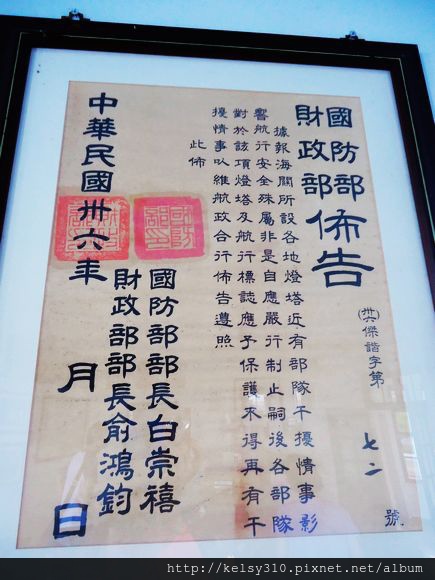 國防部
財政部
佈告
(卅六)傑諧字第 七二 號
據報海關所設各地燈塔近有部隊干擾情事影
響航行安全殊屬非是自應嚴行制止嗣後各部隊
對於該項燈塔及航行標誌應予保護不得再有干
擾情事以維航政合行佈告遵照
此佈
國防部部長白崇禧
財政部部長俞鴻鈞
中華民國卅六年 月 日
http://kelsy310.pixnet.net/album